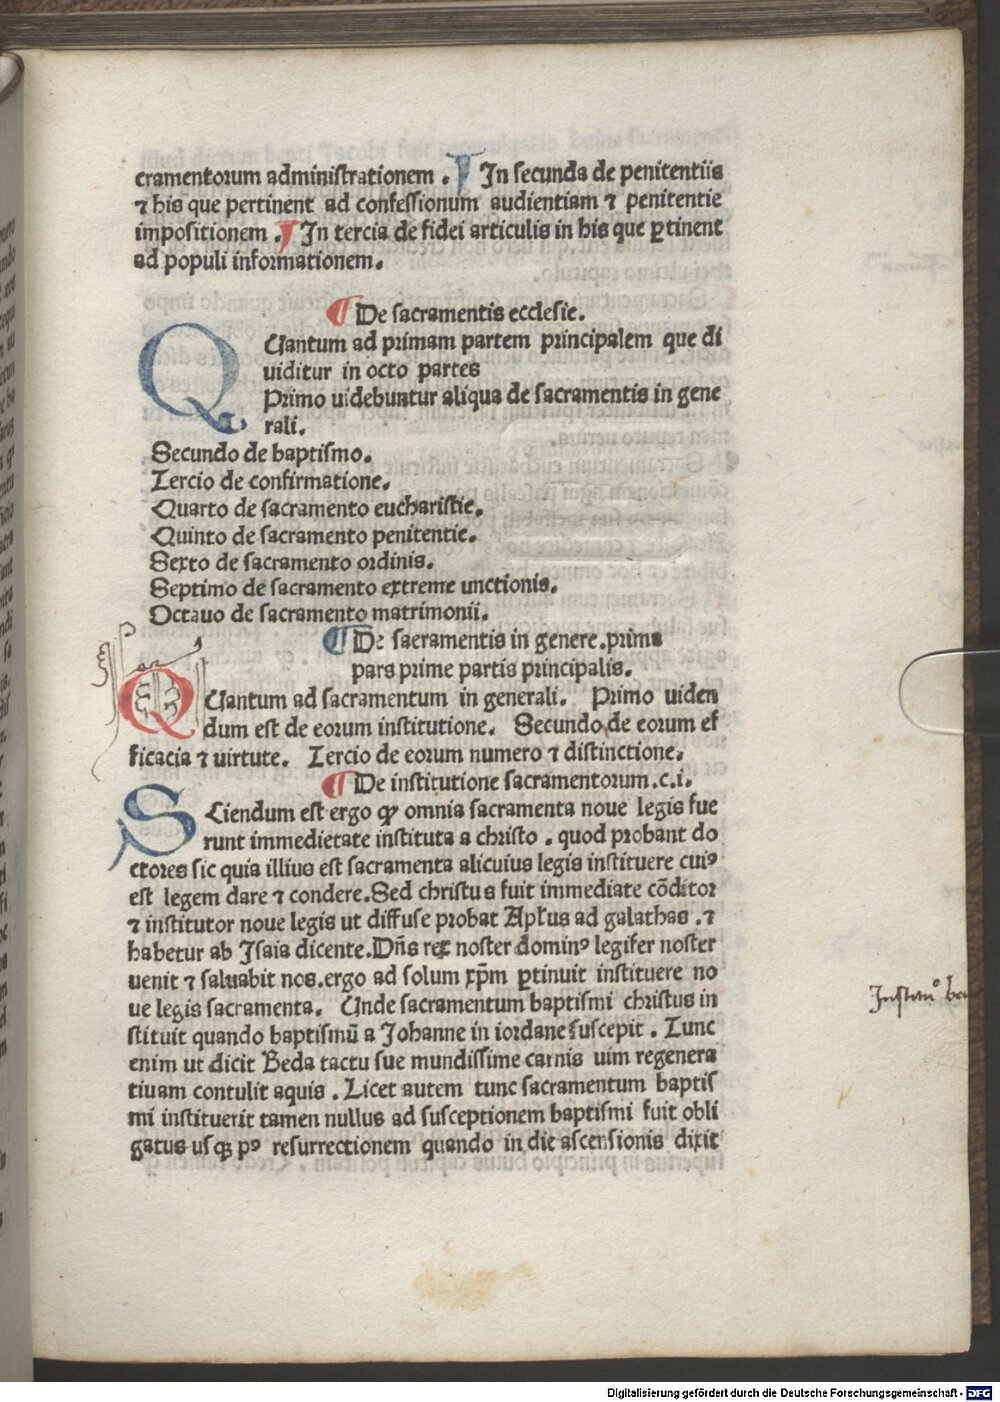 cramentorum administrationem . ¶ In secunda de penitentiis
⁊ his que pertinent ad confessionum audientiam ⁊ penitentie
impositionem . ¶ In tercia de fidei articulis in his que ꝑtinent
ad populi informationem.
¶ De sacramentis ecclesie.
QUantum ad primam partem principalem que di
uiditur in octo partes
Primo uidebuntur aliqua de sacramentis in gene
rali.
Secundo de baptismo.
Tercio de confirmatione.
Quarto de sacramento eucharistie.
Quinto de sacramento penitentie.
Sexto de sacramento ordinis.
Septimo de sacramento extreme unctionis.
Octauo de sacramento matrimonii.
¶ De sacramentis in genere.prima
pars prime partis principalis.
QUantum ad sacramentum in generali. Primo uiden
dum est de eorum institutione. Secundo de eorum ef
ficacia ⁊ uirtute. Tercio de eorum numero ⁊ distinctione.
¶ De institutione sacramentorum.c.i.
SCiendum est ergo ꝙ omnia sacramenta noue legis fue
runt immedietate instituta a christo . quod probant do
ctores sic quia illius est sacramenta alicuius legis instituere cuiꝰ
est legem dare ⁊ condere.Sed christus fuit immediate cōditor
⁊ institutor noue legis ut diffuse probat Apłus ad galathas .⁊
habetur ab Isaia dicente.Dn̄s rex noster dominꝰ legifer noster
uenit ⁊ saluabit nos.ergo ad solum xp̄m ꝑtinuit instituere no
ue legis sacramenta. Unde sacramentum baptismi christus in
stituit quando baptismū a Johanne in iordane suscepit . Tunc
enim ut dicit Beda tactu sue mundissime carnis uim regenera
tiuam contulit aquis . Licet autem tunc sacramentum baptis
mi instituerit tamen nullus ad susceptionem baptismi fuit obli
gatus usqꝫ pꝰ resurrectionem quando in die ascensionis dixit
Digitalisierung gefördert durch die Deutsche Forschungsgemeinschaft - DFG